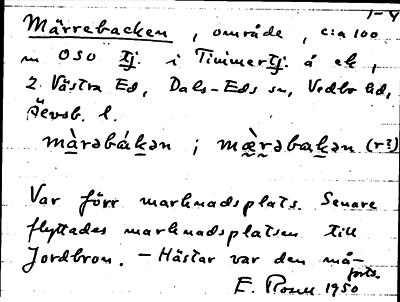 1-4
Märrebacken, område, c:a 100
m OSO tj. i Timmertj. å ek,
2. Västra Ed, Dals-Eds sn, Vedbo hd,
Älvsb. l.
mà̤rəbákən ; mæ̀rəbakən (r?)
Var förr marknadsplats. Senare
flyttades marknadsplatsen till
Jordbron. – Hästar var den må-
forts.
E. Rosell 1950